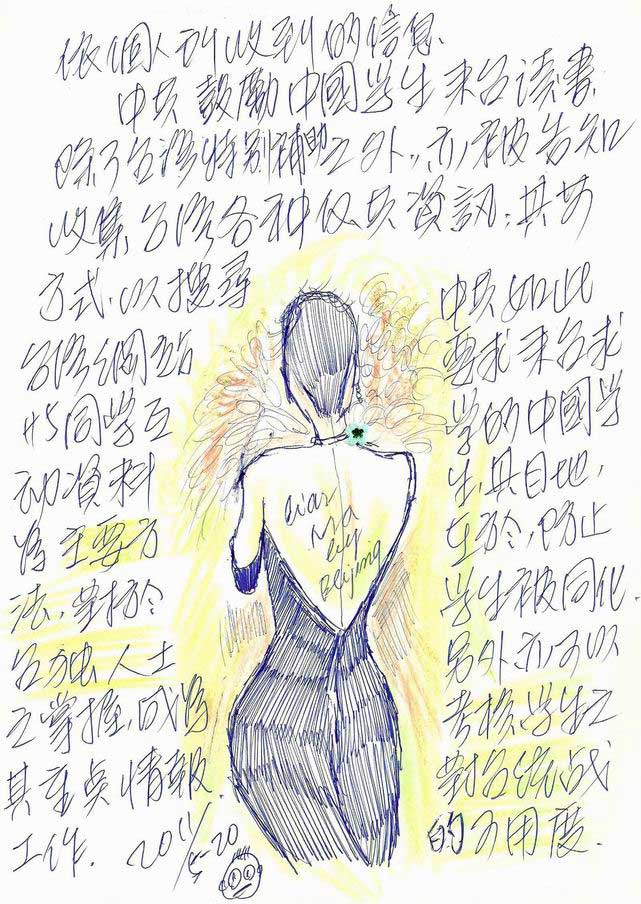 依個人所收到的信息、
中共鼓勵中國学生來台读書、
除了台灣特別補助之外、亦被告知
收集台灣各种仅共資訊、其女
方式、以搜尋
台灣網站
与同学互
動資料
為主要方
法、對於
台独人士
之掌握、成為
其重点情報
工作. 2011/5-20
中共如此
要求來台求
学的中國学
生、其目地、
在於、防止
学生被同化.
另外亦可以
考核学生之
對台统战
的可用度.
Liar
Ma
by
Beijing